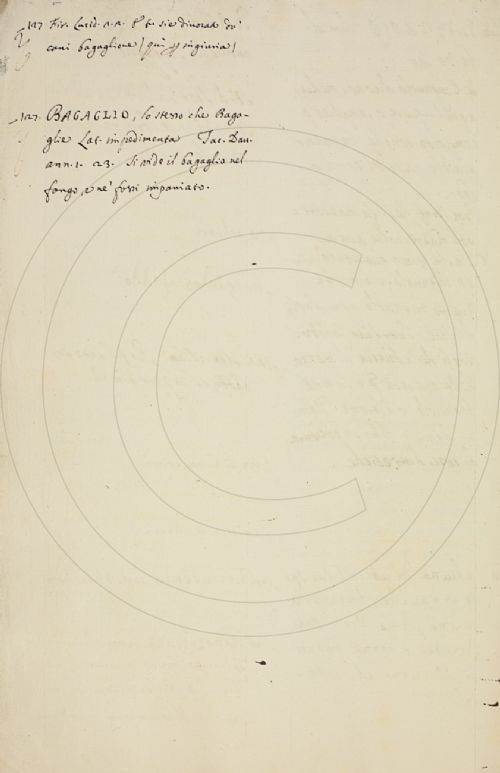 127 Fir. Lucid. a. 2. E tu sie divorato da'
cani bagaglione (qui p ingiuria)
127. BAGAGLIO, lo stesso che Baga-
glie Lat. impedimenta Tac. Dav.
ann. 1. 23. Si vide il bagaglio nel
fango, e ne' fossi impaniato.